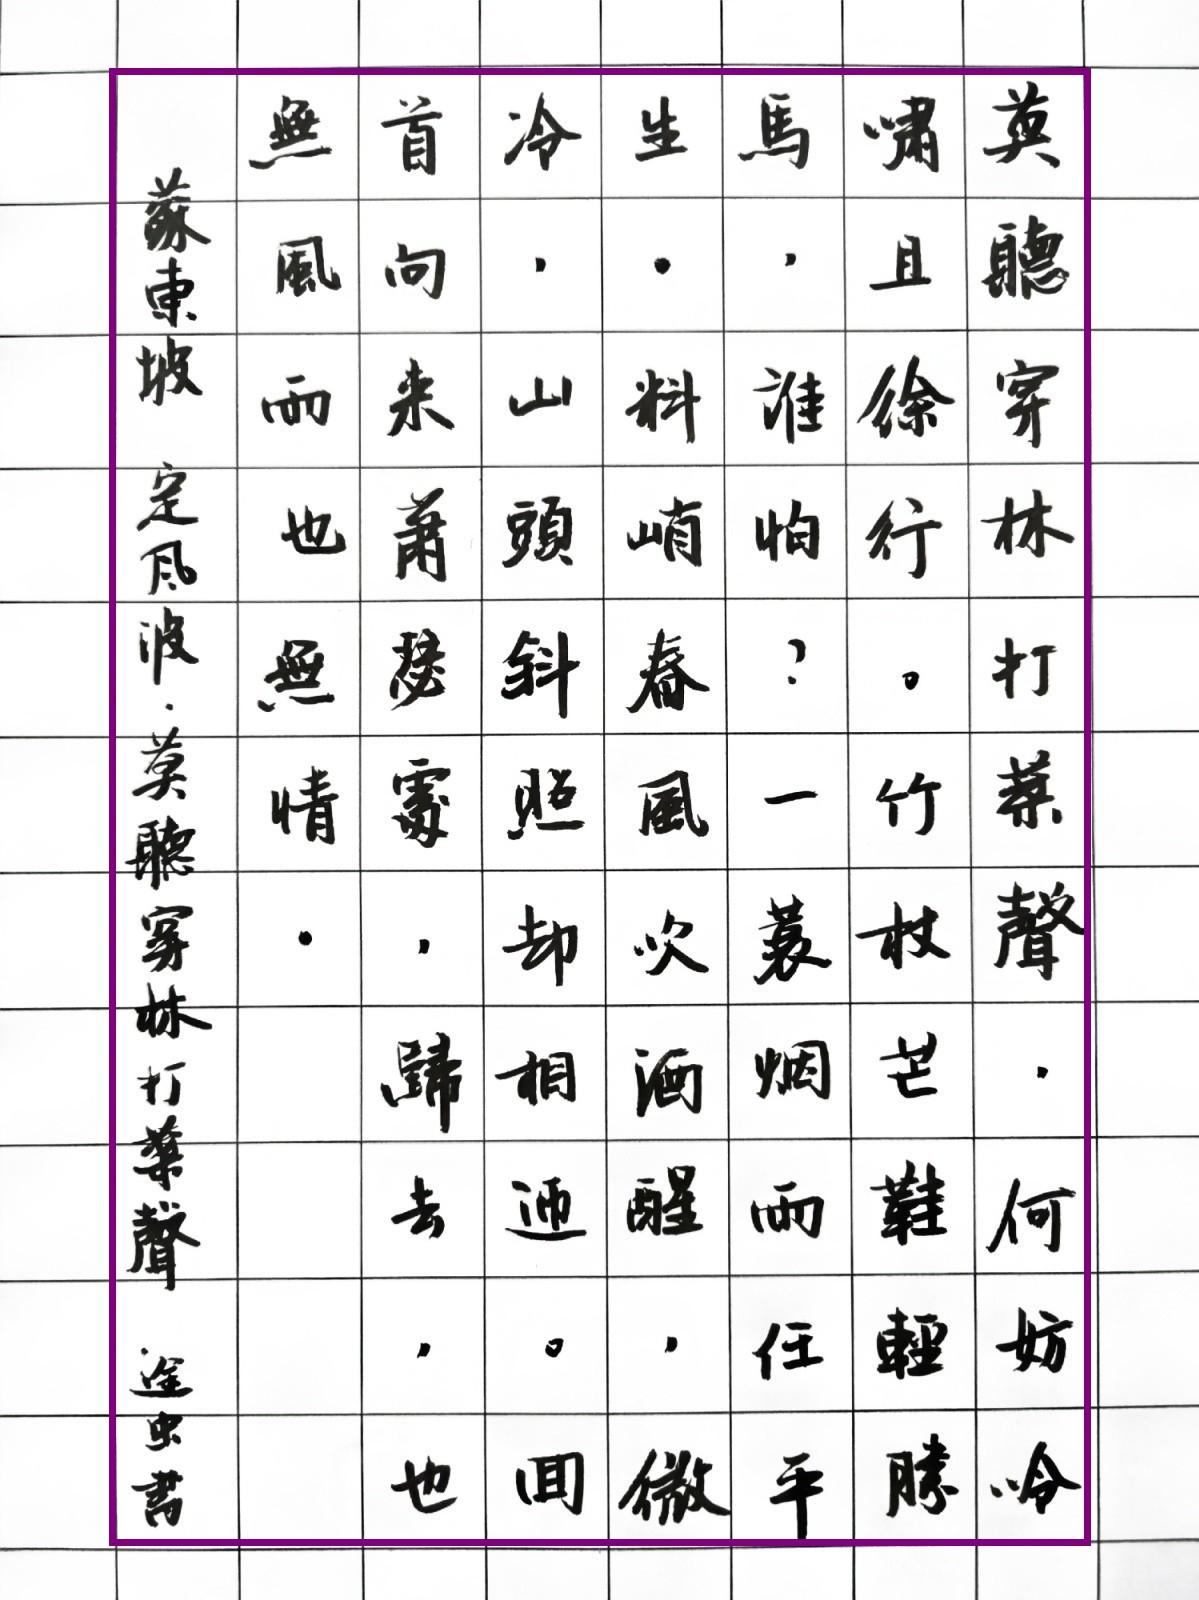 莫聽穿林打葉聲.何妨吟
嘯且徐行。竹杖芒鞋輕勝
馬，誰怕？一蓑烟雨任平
生.料峭春風吹酒醒，微
冷，山頭斜照却相迎。回
首向来蕭瑟處，歸去，也
無風雨也無情.
蘇東坡 定风波·莫聽穿林打葉聲 途虫書